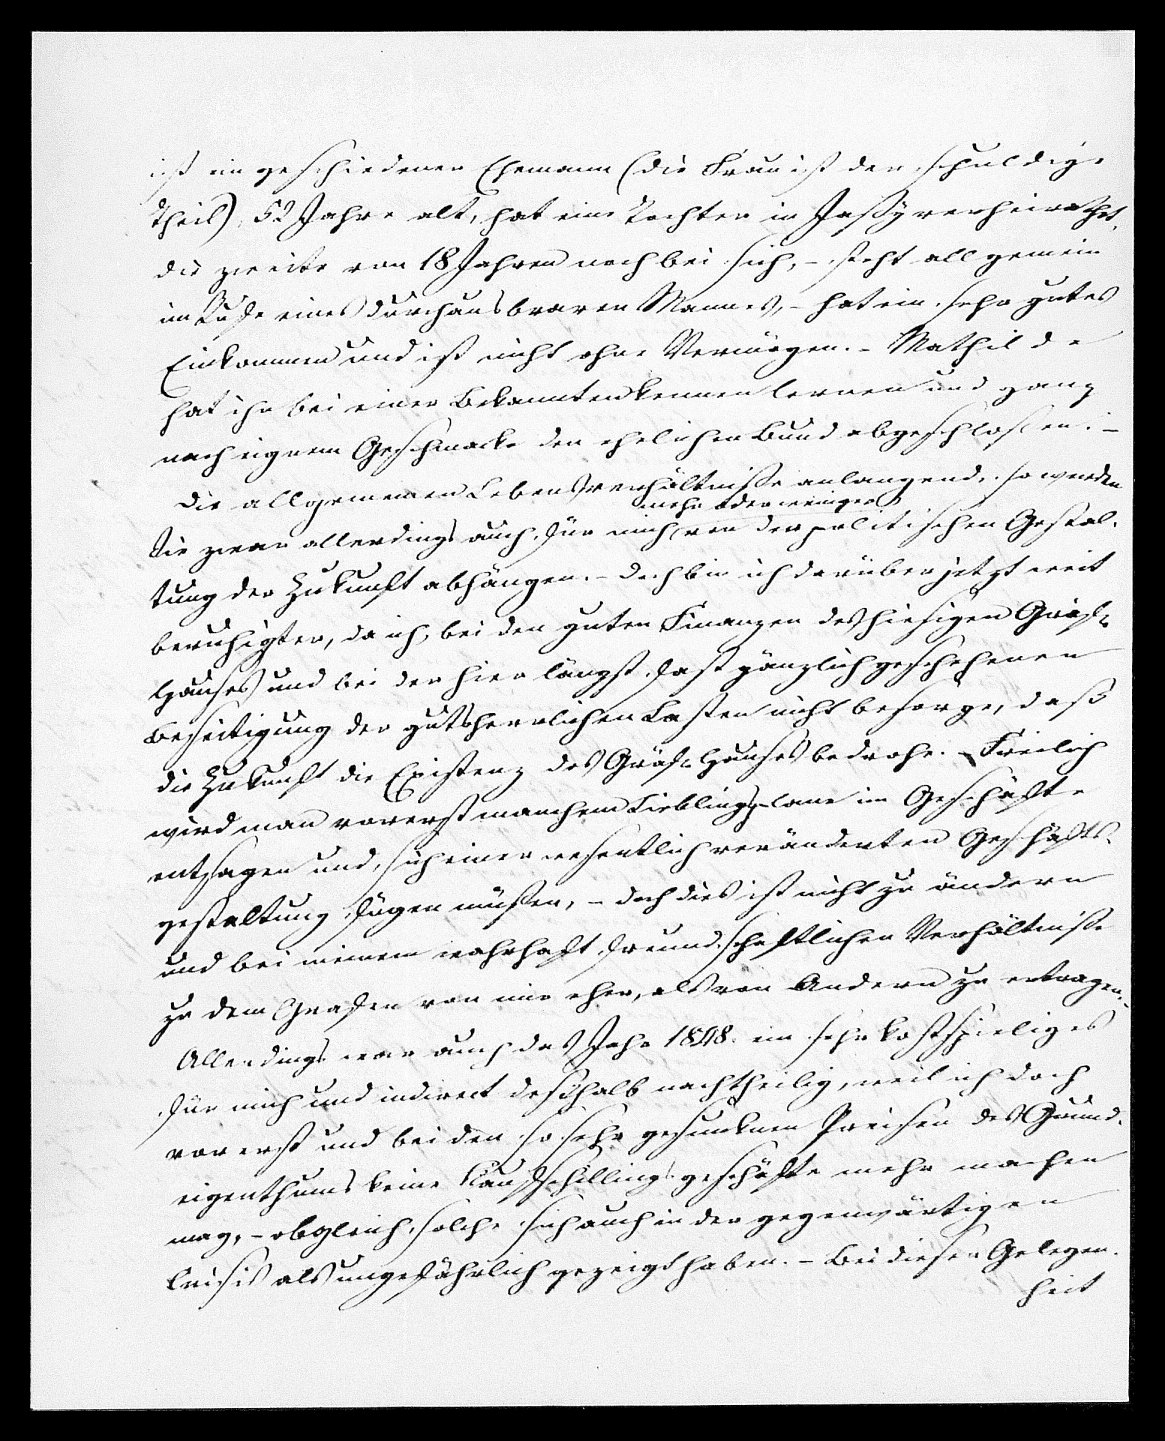 ist ein geschiedener Ehemann (die Frau ist der schuldige
Theil), 52 Jahre alt, hat eine Tochter in Jassy verheirathet,
die zweite von 18 Jahren noch bei sich, – steht allgemein
im Rufe eines durchaus braven Mannes, – hat ein sehr gutes
Einkommen und ist nicht ohne Vermögen. – Mathilde
hat ihn bei einer Bekannten kennen lernen und ganz
nach eignem Geschmacke den ehelichen Bund abgeschlossen. –
Die allgemeinen Lebensverhältnisse anlangend, so werden
mehr oder weniger
Sie zwar allerdings auch für mich von der politischen Gestal-
tung der Zukunft abhängen. – Doch bin ich darüber jetzt weit
beruhigter, da ich, bei den guten Finanzen des hiesigen Gräfl.
Hauses und bei der hier längst fast gänzlich geschehenen
Beseitigung der gutsherrlichen Lasten nicht besorge, daß
die Zukunft die Existenz des Gräfl. Hauses bedrohe. – Freilich
wird man vorerst manchem Lieblingsplane im Geschäfte
entsagen und sich einer wesentlich veränderten Geschäfts-
gestaltung fügen müssen, – doch dies ist nicht zu ändern
und bei meinem wahrhaft freundschaftlichen Verhältnisse
zu dem Grafen von mir eher, als von Andern zu ertragen. –
Allerdings war auch das Jahr 1848. ein sehr kostspieliges
für mich und indirect deßhalb nachtheilig, weil ich doch
vorerst und bei den so sehr gesunknen Preisen des Grund-
eigenthums keine Kaufschillingsgeschäfte mehr machen
mag, – obgleich solche sich auch in der gegenwärtigen
Crisis als ungefährlich gezeigt haben. – Bei dieser Gelegen-
heit